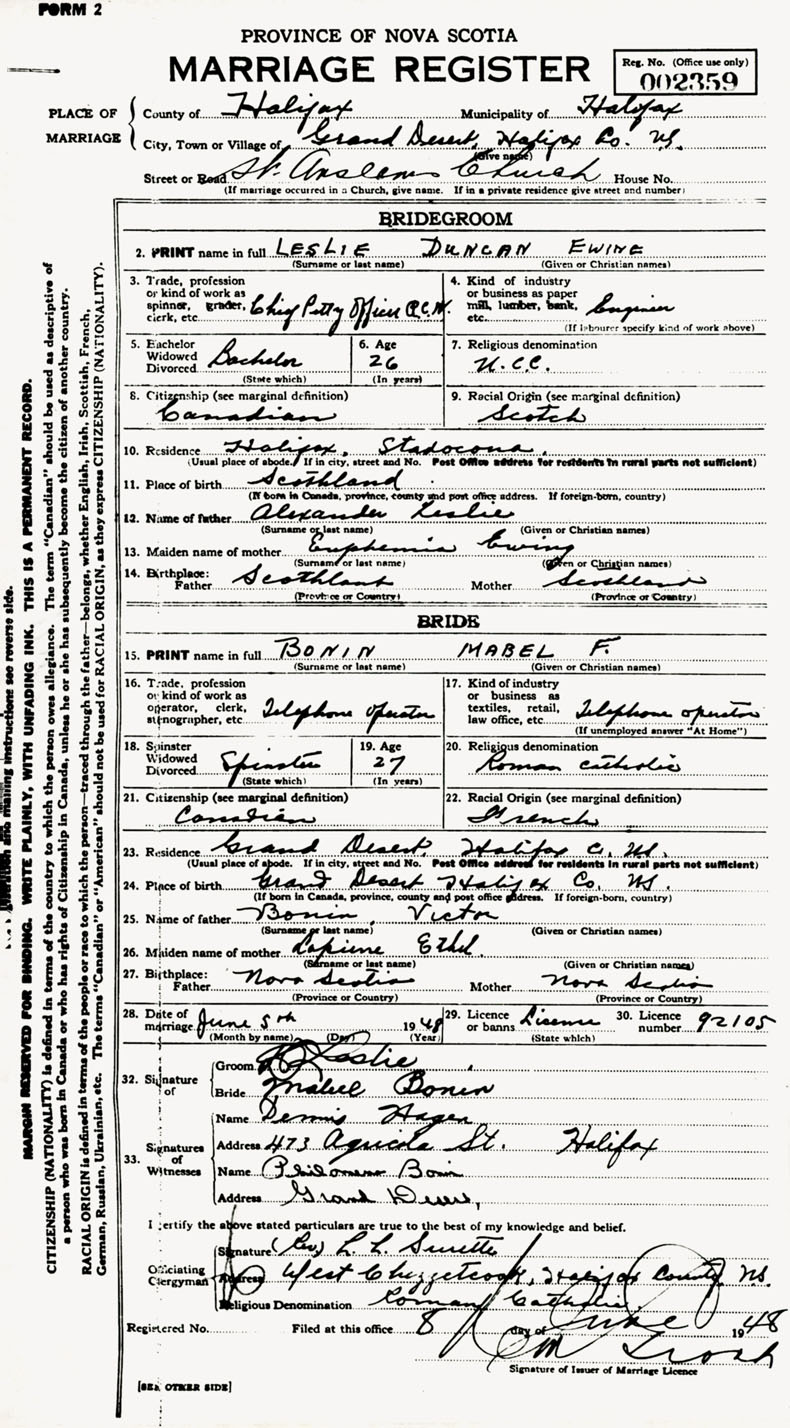 FORM 2
PROVINCE OF NOVA SCOTIA
MARRIAGE REGISTER
Reg. No. (Office use only)
002359
PLACE OF MARRIAGE
County of Halifax Municipality of Halifax
City, Town or Village of Grand Desert, Halifax Co. N.S.
(Give name)
Street or Road St. Anselms Church House No.
(If marriage occurred in a Church, give name. If in a private residence give street and number)
BRIDEGROOM
2. PRINT name in full LESLIE DUNCAN EWING
(Surname or last name) (Given or Christian names)
3. Trade, profession or kind of work as spinner, grader, clerk, etc. Chief Petty Officer R.C.N.
4. Kind of industry or business as paper mill, lumber, bank, etc. Engineer
(If labourer specify kind of work above)
5. Bachelor Widowed Divorced Bachelor
(State which)
6. Age 26
(In years)
7. Religious denomination
U.C.C.
8. Citizenship (see marginal definition)
Canadian
9. Racial Origin (see marginal definition)
Scotch
10. Residence Halifax, Stadocona,
(Usual place of abode. If in city, street and No. Post Office address for residents in rural parts not sufficient)
11. Place of birth Scothland
(If born in Canada, province, county and post office address. If foreign-born, country)
12. Name of father Alexander Leslie
(Surname or last name) (Given or Christian names)
13. Maiden name of mother Euphemia Ewing
(Surname or last name) (Given or Christian names)
14. Birthplace: Father Scothland Mother Scothland
(Province or Country) (Province or Country)
BRIDE
15. PRINT name in full BONIN MABEL F.
(Surname or last name) (Given or Christian names)
16. Trade, profession or kind of work as operator, clerk, stenographer, etc Telephone operator
17. Kind of industry or business as textiles, retail, law office, etc. Telephone operator
(If unemployed answer "At Home")
18. Spinster Widowed Divorced Spinster
(State which)
19. Age 27
(In years)
20. Religious denomination
Roman Catholic
21. Citizenship (see marginal definition)
Canadian
22. Racial Origin (see marginal definition)
French
23. Residence Grand Desert, Halifax C. N.S.
(Usual place of abode. If in city, street and No. Post Office address for residents in rural parts not sufficient)
24. Place of birth Grand Desert Halifax Co. N.S.
(If born in Canada, province, county and post office address. If foreign-born, country)
25. Name of father Bonin, Victor
(Surname or last name) (Given or Christian names)
26. Maiden name of mother Lapierre Ethel
(Surname or last name) (Given or Christian names)
27. Birthplace: Father Nova Scotia Mother Nova Scotia
(Province or Country) (Province or Country)
28. Date of marriage June 5th 1948
(Month by name) (Day) (Year)
29. Licence or banns License
(State which)
30. Licence number 92105
32. Signature of
Groom Leslie
Bride Mabel Bonin
33. Signatures of Witnesses
Name Dennis Hagen
Address 473 Agricola St. Halifax
Name Philomene Bonin
Address Grand Desert,
I certify the above stated particulars are true to the best of my knowledge and belief.
Officiating Clergyman
Signature (Rev) L. L. Surette
Address West Chezzetcook, Halifax County N.S.
Religious Denomination Roman Catholic
Registered No. Filed at this office 8 day of June 1948
Signature of Issuer of Marriage Licence
[SEE OTHER SIDE]
MARGIN RESERVED FOR BINDING. WRITE PLAINLY, WITH UNFADING INK. THIS IS A PERMANENT RECORD.
CITIZENSHIP (NATIONALITY) is defined in terms of the country to which the person owes allegiance. The term "Canadian" should be used as descriptive of
a person who was born in Canada or who has rights of Citizenship in Canada, unless he or she has subsequently become the citizen of another country.
RACIAL ORIGIN is defined in terms of the people or race to which the person—traced through the father—belongs, whether English, Irish, Scottish, French,
German, Russian, Ukrainian, etc. The terms "Canadian" or "American" should not be used for RACIAL ORIGIN, as they express CITIZENSHIP (NATIONALITY).
and mailing instructions see reverse side.